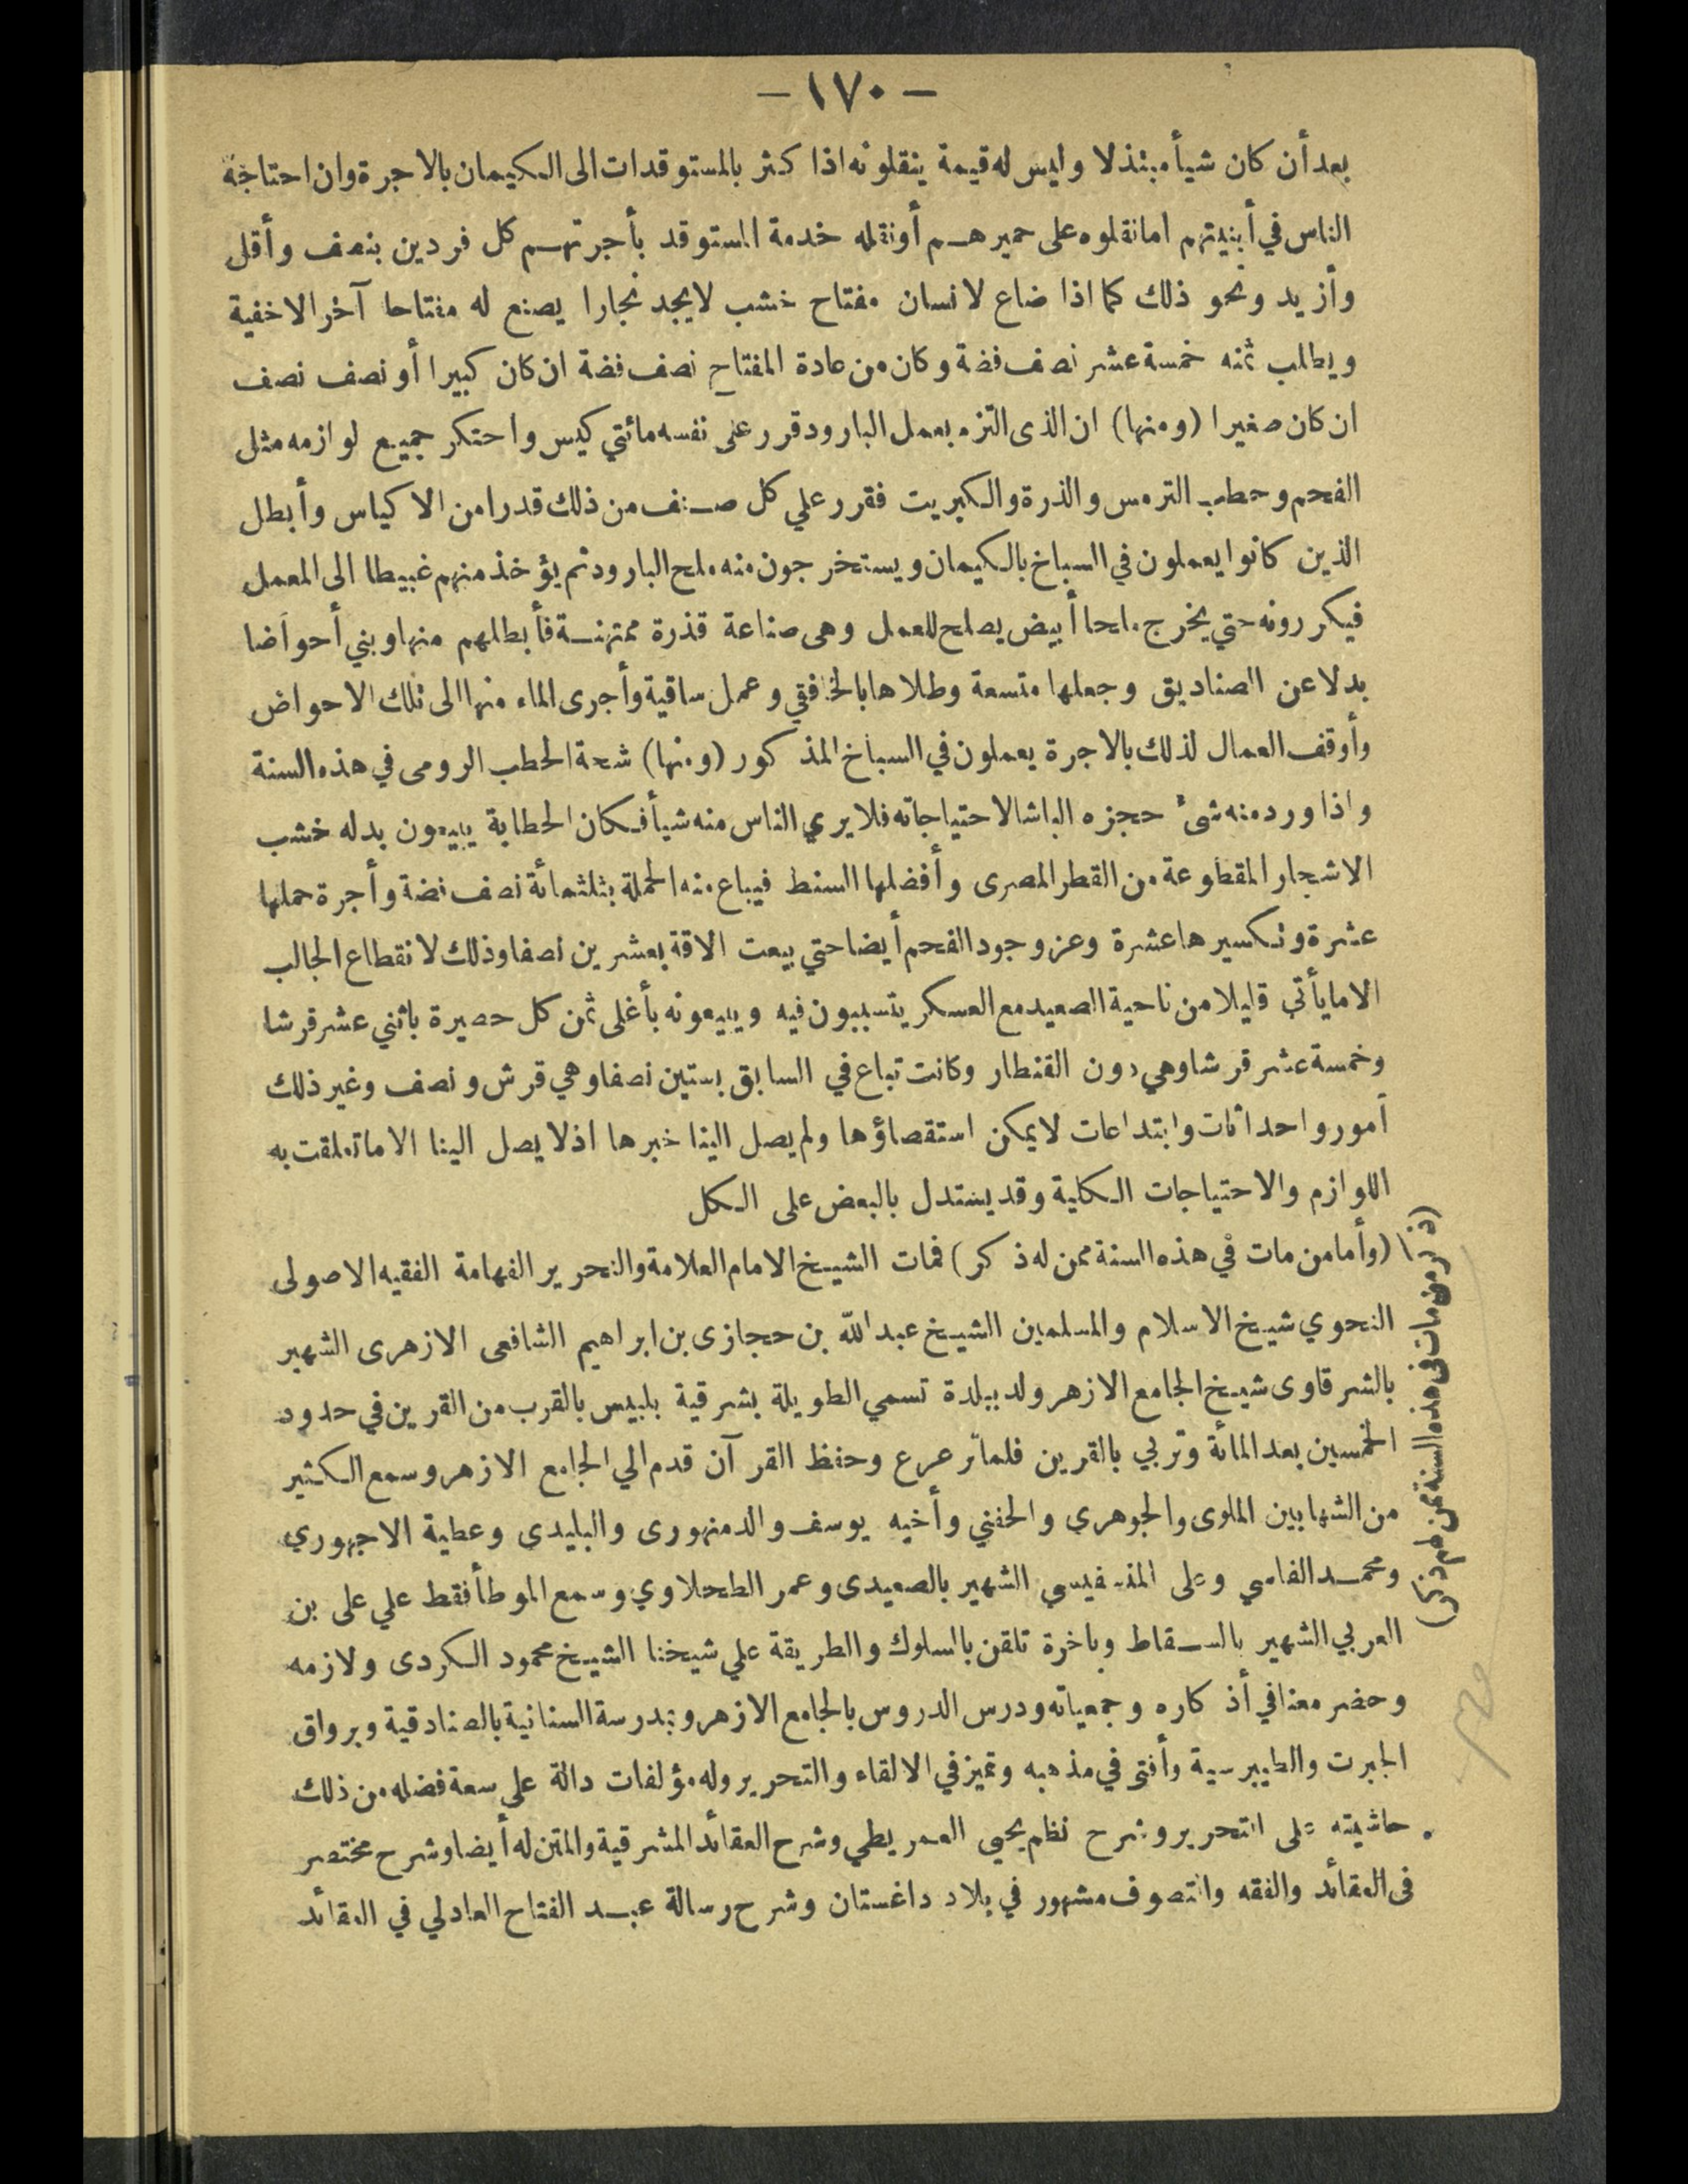 — ١٧٠ —
بعد أن كان شيأ مبتذلا وليس له قيمة ينقلونه اذا كثر بالمستوقدات الى الكيمان بالاجرة وان احتاجة
الناس في أبنيتهم اما نقلوه على حميرهم أو نقله خدمة المستوقد بأجرتهم كل فردين بنصف وأقل
وأزيد ونحو ذلك كما اذا ضاع لانسان مفتاح خشب لايجد نجارا يصنع له مفتاحا آخر الاخفية
ويطلب ثمنه خمسة عشر نصف فضة وكان من عادة المفتاح نصف فضة ان كان كبيرا أو نصف نصف
ان كان صغيرا (ومنها) ان الذى التزم بعمل البارود قرر على نفسه مائتي كيس واحتكر جميع لوازمه مثل
الفحم وحطب الترمس والذرة والكبريت فقرر علي كل صنف من ذلك قدرا من الاكياس وأبطل
الذين كانوا يعملون في السباخ بالكيمان ويستخرجون منه ملح البارود ثم يؤخذ منهم غبيطا الى المعمل
فيكررونه حتي يخرج ملحا أبيض يصلح للعمل وهى صناعة قذرة ممتهنة فأبطلهم منها وبني أحواضا
بدلا عن الصناديق وجعلها متسعة وطلاها بالخافقي وعمل ساقية وأجرى الماء منها الى تلك الاحواض
وأوقف العمال لذلك بالاجرة يعملون في السباخ المذكور (ومنها) شحة الحطب الرومى في هذه السنة
واذا ورد منه شئ حجزه الباشا لاحتياجاته فلايري الناس منه شيأ فكان الحطابة يبيعون بدله خشب
الاشجار المقطوعة من القطر المصرى وأفضلها السنط فيباع منه الحملة بثلثمائة نصف فضة وأجرة حملها
عشرة وتكسيرها عشرة وعز وجود الفحم أيضا حتي بيعت الاقة بعشرين نصفا وذلك لانقطاع الجالب
الا مايأتي قليلا من ناحية الصعيد مع العسكر يتسببون فيه ويبيعونه بأغلى ثمن كل حصيرة باثني عشر قرشا
وخمسة عشر قرشا وهي دون القنطار وكانت تباع في السابق بستين نصفا وهي قرش ونصف وغير ذلك
أمور واحداثات وابتداعات لايمكن استقصاؤها ولم يصل الينا خبرها اذ لايصل الينا الا ماتعلقت به
اللوازم والاحتياجات الكلية وقد يستدل بالبعض على الكل
(وأما من مات في هذه السنة ممن له ذكر) فمات الشيخ الامام العلامة والنحرير الفهامة الفقيه الاصولى
النحوي شيخ الاسلام والمسلمين الشيخ عبد الله بن حجازى بن ابراهيم الشافعى الازهرى الشهير
بالشرقاوى شيخ الجامع الازهر ولد ببلدة تسمي الطويلة بشرقية بلبيس بالقرب من القرين في حدود
الخمسين بعد المائة وتربي بالقرين فلما ترعرع وحفظ القرآن قدم الي الجامع الازهر وسمع الكثير
من الشهابين الملوى والجوهري والحفني وأخيه يوسف والدمنهورى والبليدى وعطية الاجهوري
ومحمد الفاسي وعلى المنسفيسي الشهير بالصعيدى وعمر الطحلاوي وسمع الموطأ فقط علي على بن
العربي الشهير بالسقاط وباخرة تلقن بالسلوك والطريقة علي شيخنا الشيخ محمود الكردى ولازمه
وحضر معنا في أذكاره وجمعياته ودرس الدروس بالجامع الازهر وبمدرسة السنانية بالصنادقية وبرواق
الجبرت والطيبرسية وأفتى في مذهبه وتميز في الالقاء والتحرير وله مؤلفات دالة على سعة فضله من ذلك
حاشيته على التحرير وشرح نظم يحيى العمريطي وشرح العقائد المشرقية والمتن له أيضا وشرح مختصر
فى العقائد والفقه والتصوف مشهور في بلاد داغستان وشرح رسالة عبد الفتاح العادلي في العقائد
(ذكر من مات في هذه السنة ممن لهم ذكر)